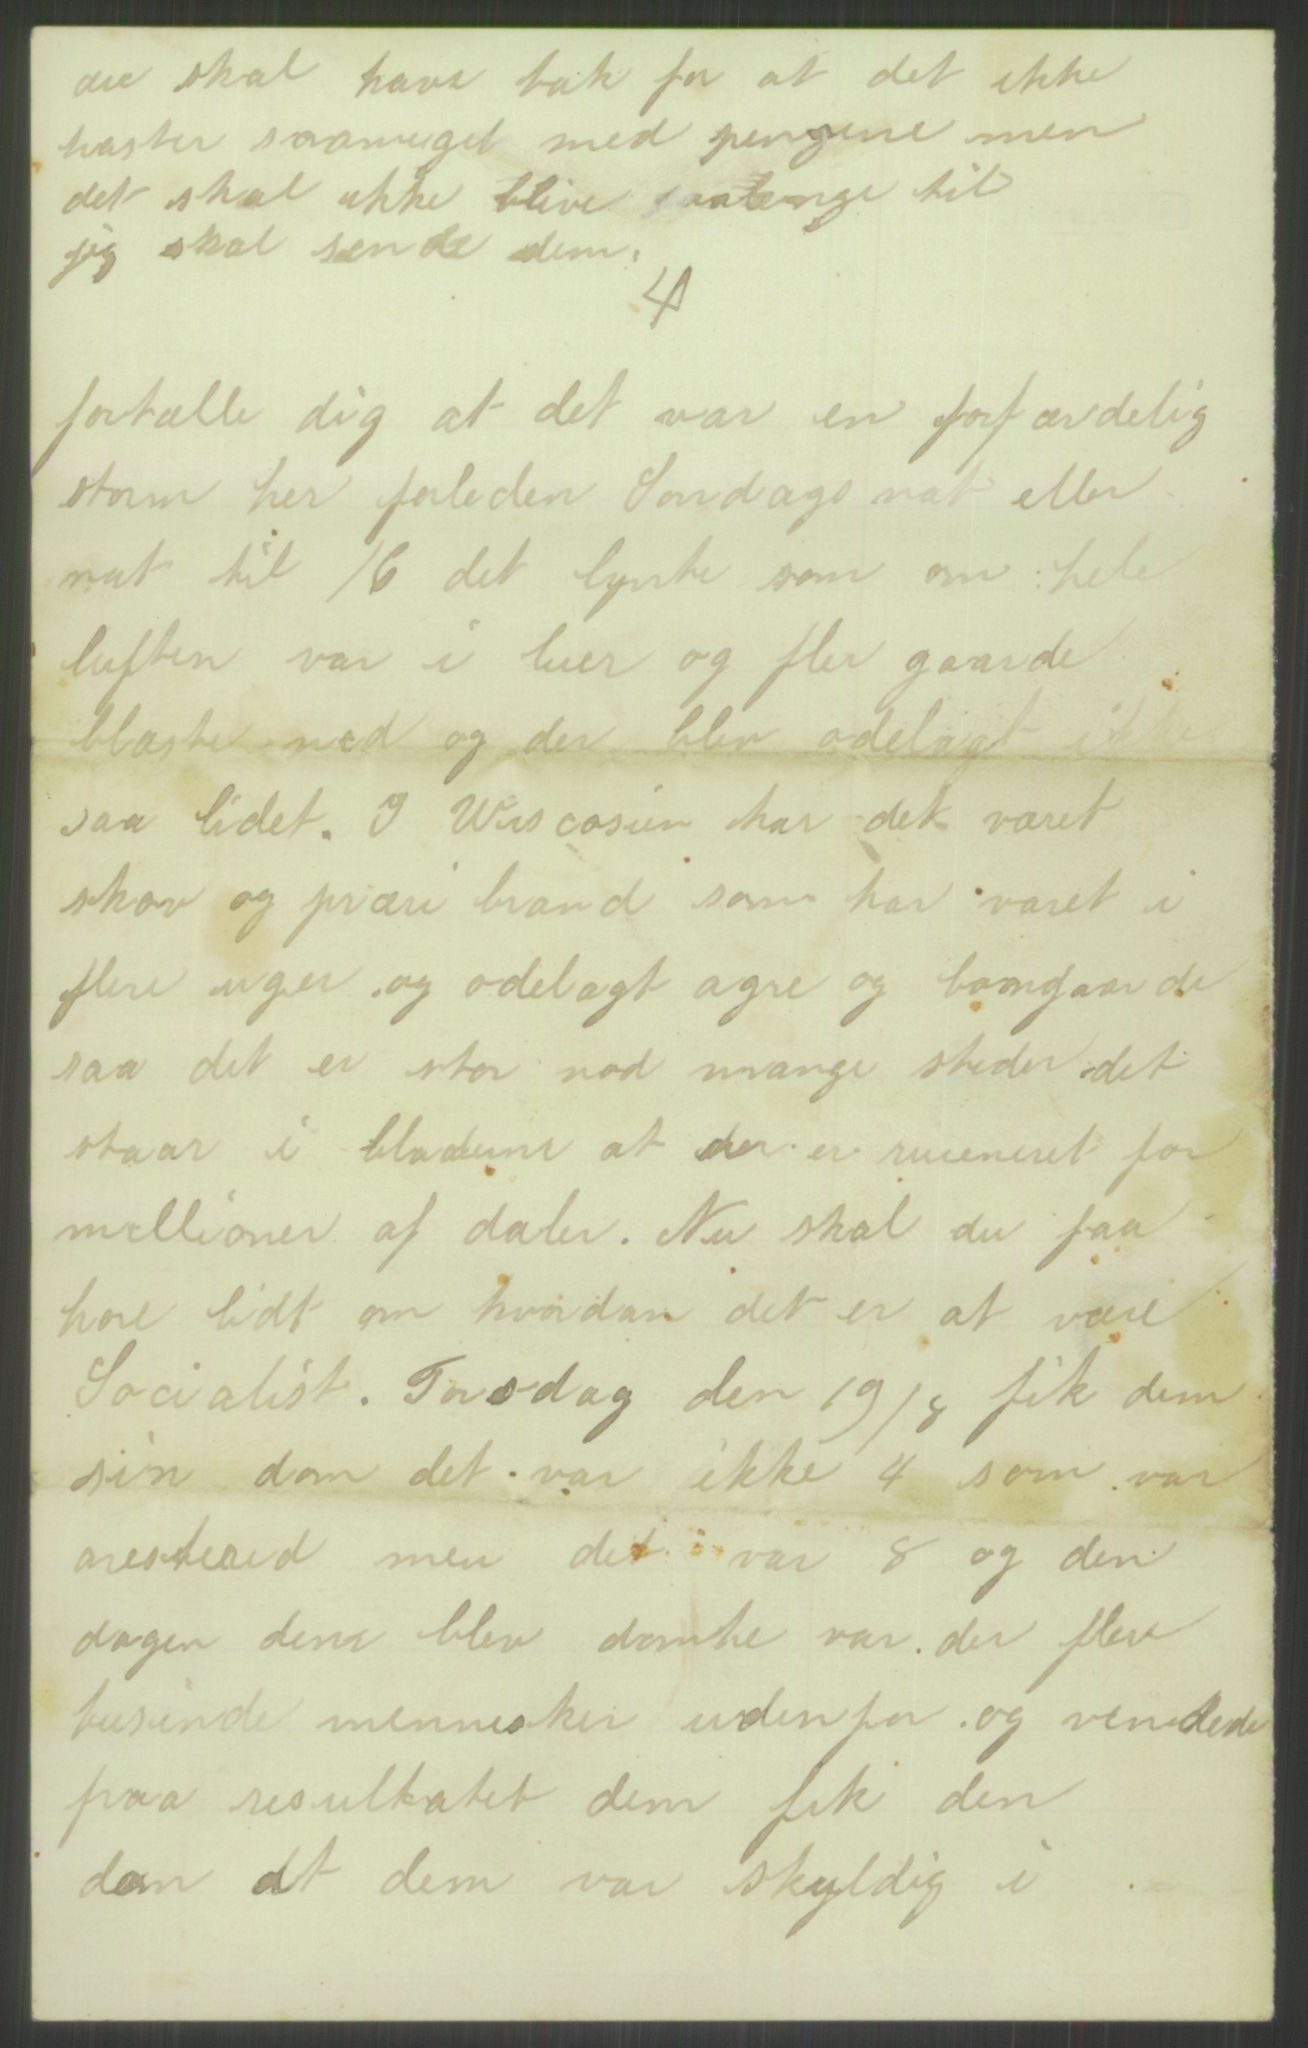 du skal have tak for at det ikke
haster saameget med pengene men
det skal ikke blive saalenge til
jig skal sende dem.
4
fortælle dig at det var en forfærdelig
storm her forleden Sondags nat eller
nat til 16 det lynte som om hele
luften var i luer og fler gaarde
blæste ned og der blev odelagt ikke
saa lidet. I Wiscosien har det været
skov og præri brand som har varet i
flere uger og odelagt agre og bomgaarde
saa det er stor nod mange steder det
staar i bladene at der er rueneret for
mellioner af daler. Nu skal du faa
hore lidt om hvordan det er at være
Socialist. Torsdag den 19/8 fik dem
sin dom det var ikke 4 som var
arestered men det var 8 og den
dagen dem blev domte var der flere
tusinde mennesker udenfor og ventede
paa resultatet dem fik den
dom at dem var skyldig i